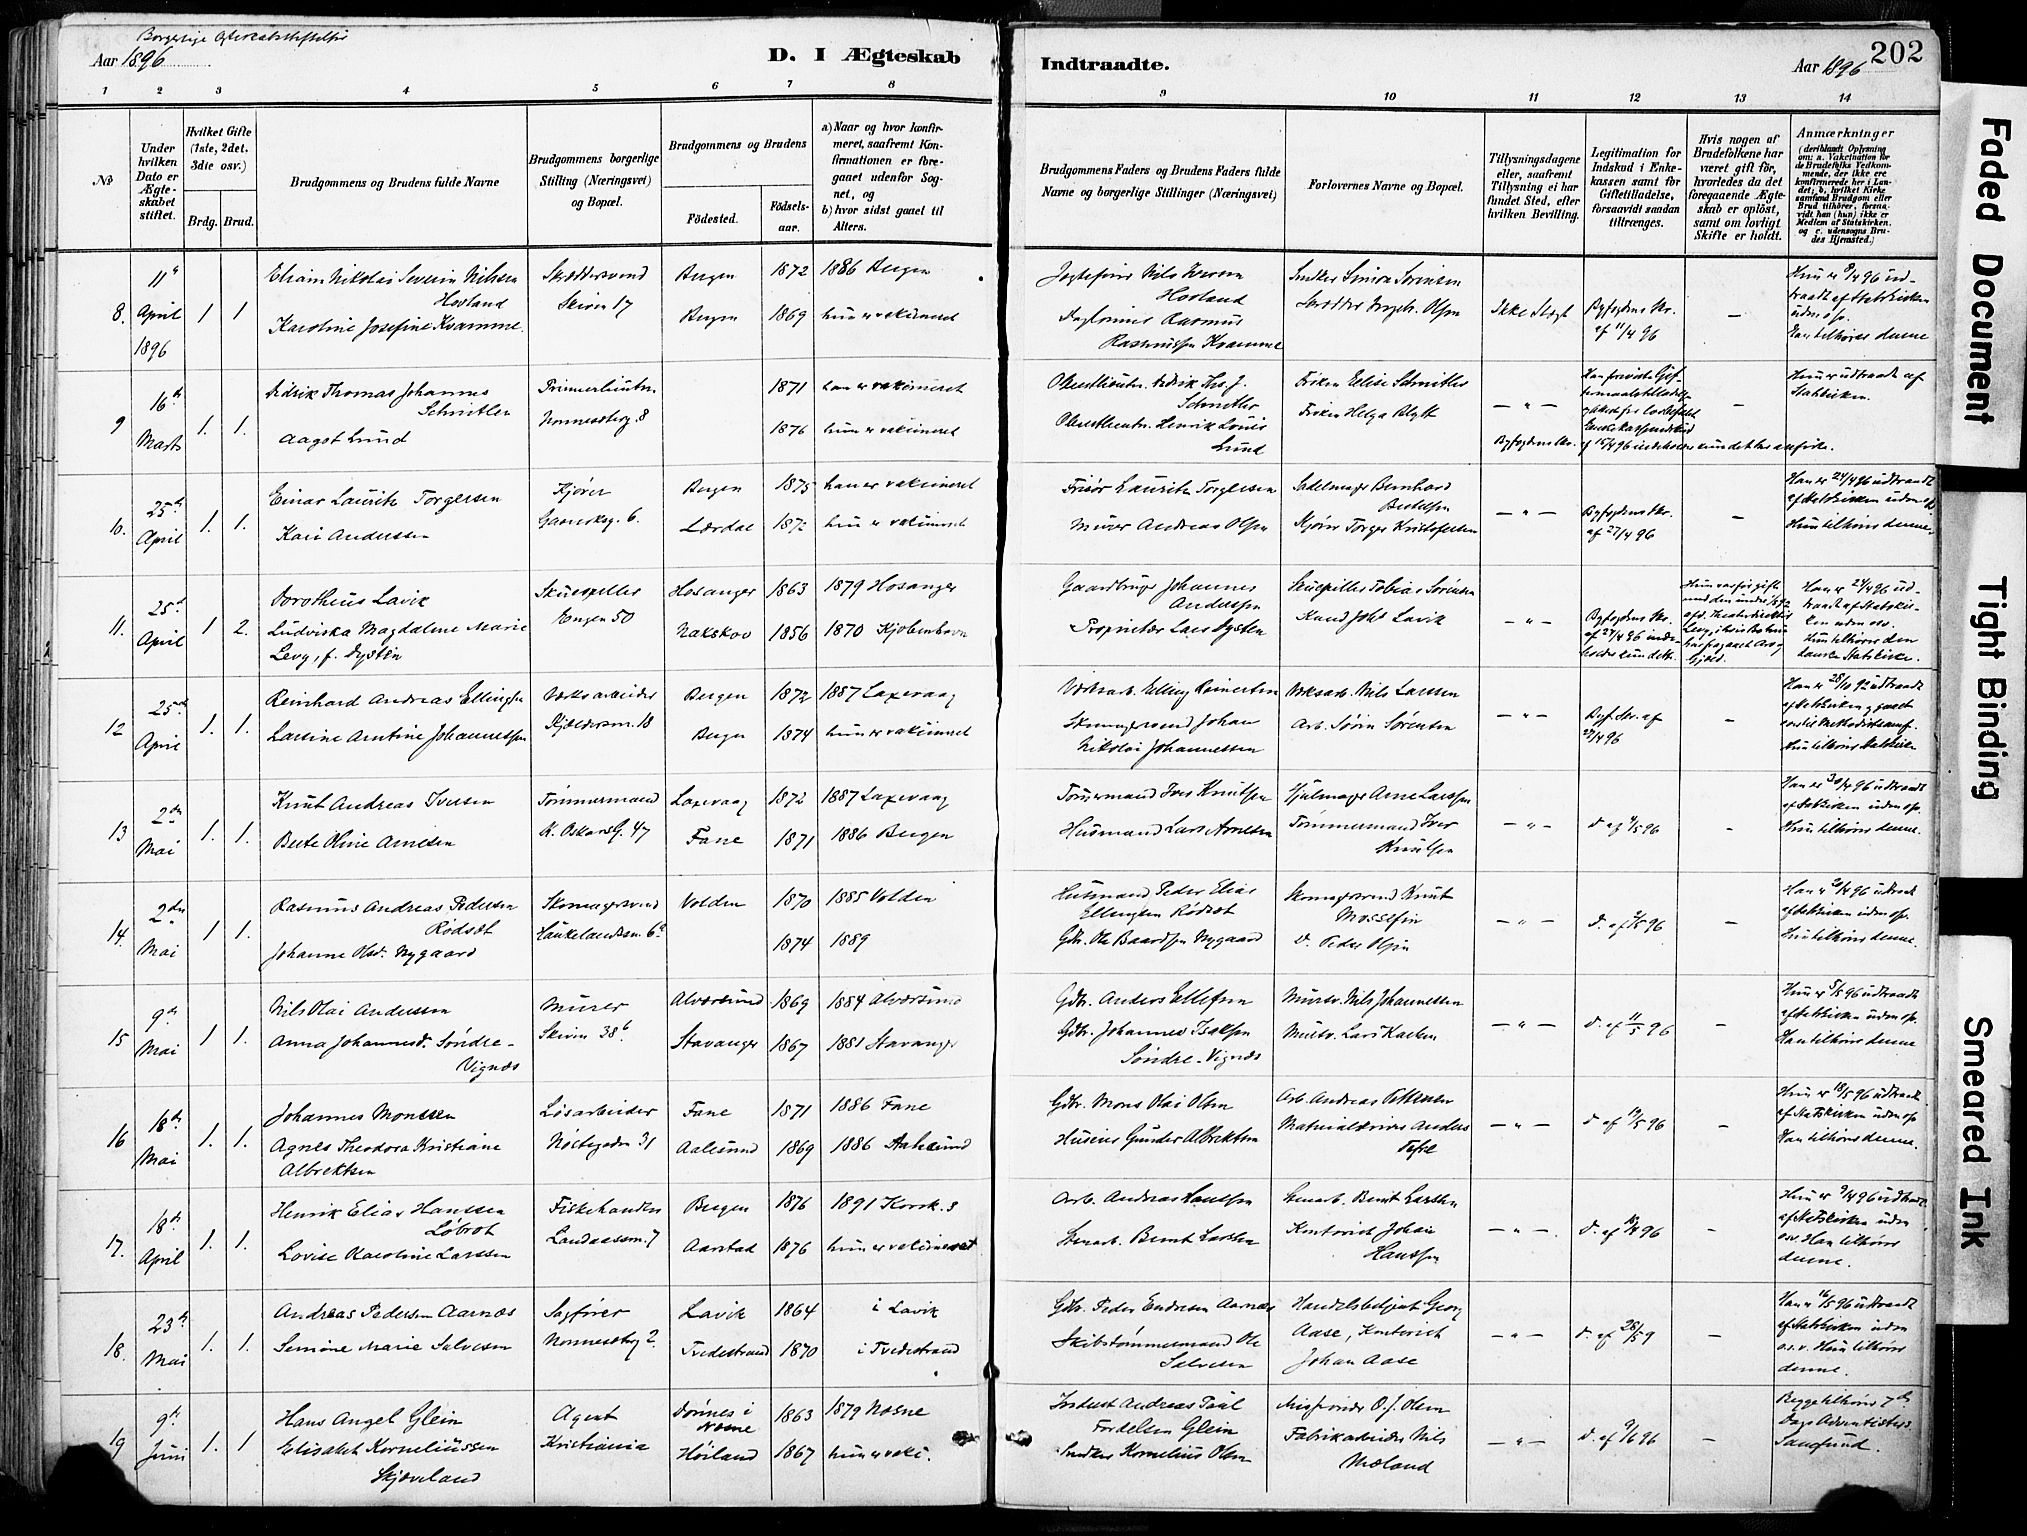 Borgerlige
Aar 1896
D. I Ægteskab
Indtraadte.
Aar 1896
202
1 2 3 4 5 6 7 8 9 10 11 12 13 14
No
Under hvilken Dato er Ægteskabet stiftet.
Hvilket Gifte (1ste, 2det, 3die osv.)
Brdg. Brud.
Brudgommens og Brudens fulde Navne
Brudgommens borgerlige Stilling (Næringsvei) og Bopæl.
Brudgommens og Brudens
Fødested.
Fødselsaar.
a) Naar og hvor konfirmeret, saafremt Konfirmationen er foregaaet udenfor Sognet, og
b) hvor sidst gaaet til Alters.
Brudgommens Faders og Brudens Faders fulde Navne og borgerlige Stillinger (Næringsvei)
Forlovernes Navne og Bopæl.
Tillysningsdagene eller, saafremt Tillysning ei har fundet Sted, efter hvilken Bevilling.
Legitimation for Indskud i Enkekassen samt for Giftetilladelse, forsaavidt saadan tiltrænges.
Hvis nogen af Brudefolkene har været gift før, hvorledes da det foregaaende Ægteskab er opløst, samt om lovligt Skifte er holdt.
Anmærkninger
(deriblandt Oplysning om: a. Vakcination for de Brudefolks Vedkommende, der ikke ere konfirmerede her i Landet; b. hvilket Kirkesamfund Brudgom eller Brud tilhører, forsaavidt han (hun) ikke er Medlem af Statskirken, og c. udensogns Brudes Hjemsted.)
8. 11te April 1896 1 1
Nikolai Severin Nilsen Hovland
Karoline Josefine Kvamme
Skræddersvend
Skiven 17
Bergen 1872 1886 Bergen
Bergen 1869 hun er vakcineret
Hovland
Rasmus Rasmussen Kvamme
Snedker Simon Sørensen
Ikke Slægt
Byfogdens Skr. af 11/4 96
—
Hun er 9/4 96 udtraadt af Statskirken
Han tilhører denne
9 16de Marts 1. 1.
Didrik Thomas Johannes Schnitler
Aagot Lund
Premierlieutn.
Nonnesætrg. 8
1871 han er vakcineret
1876 hun er vakcineret
Schnitler
Oberstlieutn. Henrik Louis Lund
Frøken Helga Blytt
— " —
Byfogdens Skr.
—
Hun er udtraadt af Statskirken.
10. 25de April 1. 1.
Einar Lauritz Torgersen
Kari Andersen
Kjører
Bergen 1875 han er vakcineret
Lærdal 1872 hun er vakcineret
Frisør Lauritz Torgersen
Murer Andreas Olsen
Sadelmager Bernhard Bertelsen
Kjører Torger Kristofersen
— " —
Byfogdens Skr. af 27/4 96
—
Han er 24/4 96 udtraadt af Statskirken
Hun tilhører denne
11. 25de April 1 2.
Dorotheus Lavik
Ludviska Magdalene Marie Levy, f. Dysten
Skuespiller
Engen 50
Hosanger 1863 1879 Hosanger
Nakskov 1856 1870 Kjøbenhavn
Gaardbruger Johannes Andersen
Proprietær Lars Dysten
Skuespiller Tobias Sørensen
Knud Johs Lavik
— " —
Byfogdens Skr. af 27/4 96
Han er 24/4 96 udtraadt af Statskirken
Hun tilhører den danske Statskirke.
12 25de April 1. 1.
Reinhard Andreas Ellingsen
Larsine Arntine Johannessen
Værksarbeider
Bergen 1872 1887 Laxevaag
Bergen 1874 hun er vakcineret
Værksarb. Elling Reinertsen
Skomagersvend Johan Nikolai Johannessen
Værksarb. Nils Larssen
Arb. Søren Sørensen
— " —
Byf. Skr. af 27/4 96
—
Hun tilhører Statskirken
13 2den Mai 1. 1.
Knut Andreas Iversen
Berte Oline Arnesen
Tømmermand
K. Oskars G. 47
Laxevaag 1872 1887 Laxevaag
Fane 1871 1886 Bergen
Tømermand Iver Knutsen
Husmand Lars Arnesen
Hjulmager Arne Larssen
Tømmermand Iver Knutsen
— " —
D. af 4/5 96
—
Han er 30/4 96 udtraadt af Statskirken uden op.
Hun tilhører denne.
14. 2den Mai 1 1.
Rasmus Andreas Pedersen Rødsæt
Johanne Olsd. Nygaard
Skomagersvend
Haukelandsv. 6a
Volden 1870 1885 Volden
1874 1889
Husmand Peder Elias Ellingsen Rødsæt
Gbr. Ole Baardsen Nygaard
Skomagersvend Knut Mossesen
D. Peder Olsen
— " —
—
Hun tilhører denne.
15 9de Mai 1 1.
Nils Olai Anderssen
Anna Johannesd. Søndre-Vignæs
Murer
Skiven 38b
Alværsund 1869 1884 Alværsund
Stavanger 1867 1881 Stavanger
Gbr. Anders Ellefsen
Gbr. Johannes Isaksen Søndre-Vignæs
Mursv. Nils Johannessen
— " —
D. af 11/5 96
—
Hun er 5/5 96 udtraadt af Statskirken uden op.
Han tilhører denne
16 18de Mai 1. 1.
Johannes Monssen
Agnes Theodora Kristiane Albrektsen
Løsarbeider
Nøstegaden 31
Fane 1871 1886 Fane
Aalesund 1869 1886 Aalesund
Gbr. Mons Olai Olsen
Gunder Albrektsen
Arb. Andreas Pettersen
— " —
D. af 19/5 96
—
Hun er 18/5 96 udtraadt af Statskirken uden op
Han tilhører denne.
17. 18de April 1. 1.
Henrik Elias Hanssen Løbrot
Lovise Karoline Larssen
Fiskehandler
Landaassm. 7
Bergen 1876 1891 Korsk.
Aarstad 1876 hun er vakcineret
Arb. Andreas Hanssen
Stenarb. Bernt Larsen
Stenarb. Bernt Larsen
Kontorist Johan Hanssen
— " —
—
Hun er 9/4 96 udtraadt af Statskirken uden
o.s.v. Han tilhører denne.
18. 23de Mai 1. 1.
Andreas Pedersen Aarnæs
Semine Marie Salvesen
Sagfører
Nonnesætrg 2
Lavik 1864 i Lavik
Tvedestrand 1870 i Tvedestrand
Gbr. Peder Endresen Aarnæs
Skibstømmermand Ole Salvesen
Handelsbetjent Georg Aase, Kontorist Johan Aase
— " —
D. af 26/5 9
—
Han er 16/5 96 udtraadt af Statskirken uden
o.s.v. Hun tilhører denne
19 9de Juni 1. 1
Hans Angel Glein
Elisabet Korneliussen Skjæveland
Agent
Kristiania
Dønnes i Næsne 1863 1879 Næsne
Høiland 1867 hun er vakc.
Andreas Paal Fordelsen Glein
Snedker Kornelius Olsen
O. J. Olsen
Fabrikarbeider Nils Mæland
— " —
D. af 9/6 96
—
Begge tilhører 7de Dags Adventisters Samfund.
Faded Document
Tight Binding
Smeared Ink